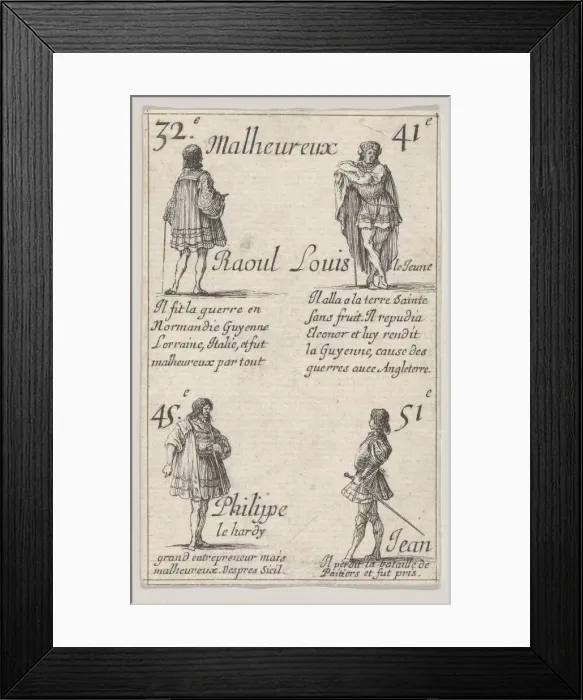 32.e Malheureux 41e
Raoul Louis le Jeune
Il fit la guerre en
Normandie Guyenne
Lorraine, Italie, et fut
malheureux par tout
Il alla a la terre Sainte
sans fruit. Il repudia
Eleonor et luy rendit
la Guyenne, cause des
guerres avec Angleterre.
45.e
Philippe
le hardy
grand entrepreneur mais
malheureux. Vespres Sicil.
51e
Jean
Il perdit la bataille de
Poitiers et fut pris.